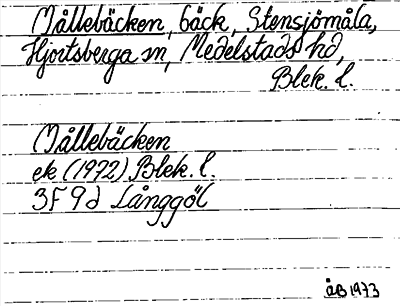 Mållebäcken, bäck, Stensjömåla,
Hjortsberga sn, Medelstads hd,
Blek. l.
Mållebäcken
ek (1972) Blek. l.
3F 9d Långgöl
ÅB 1973